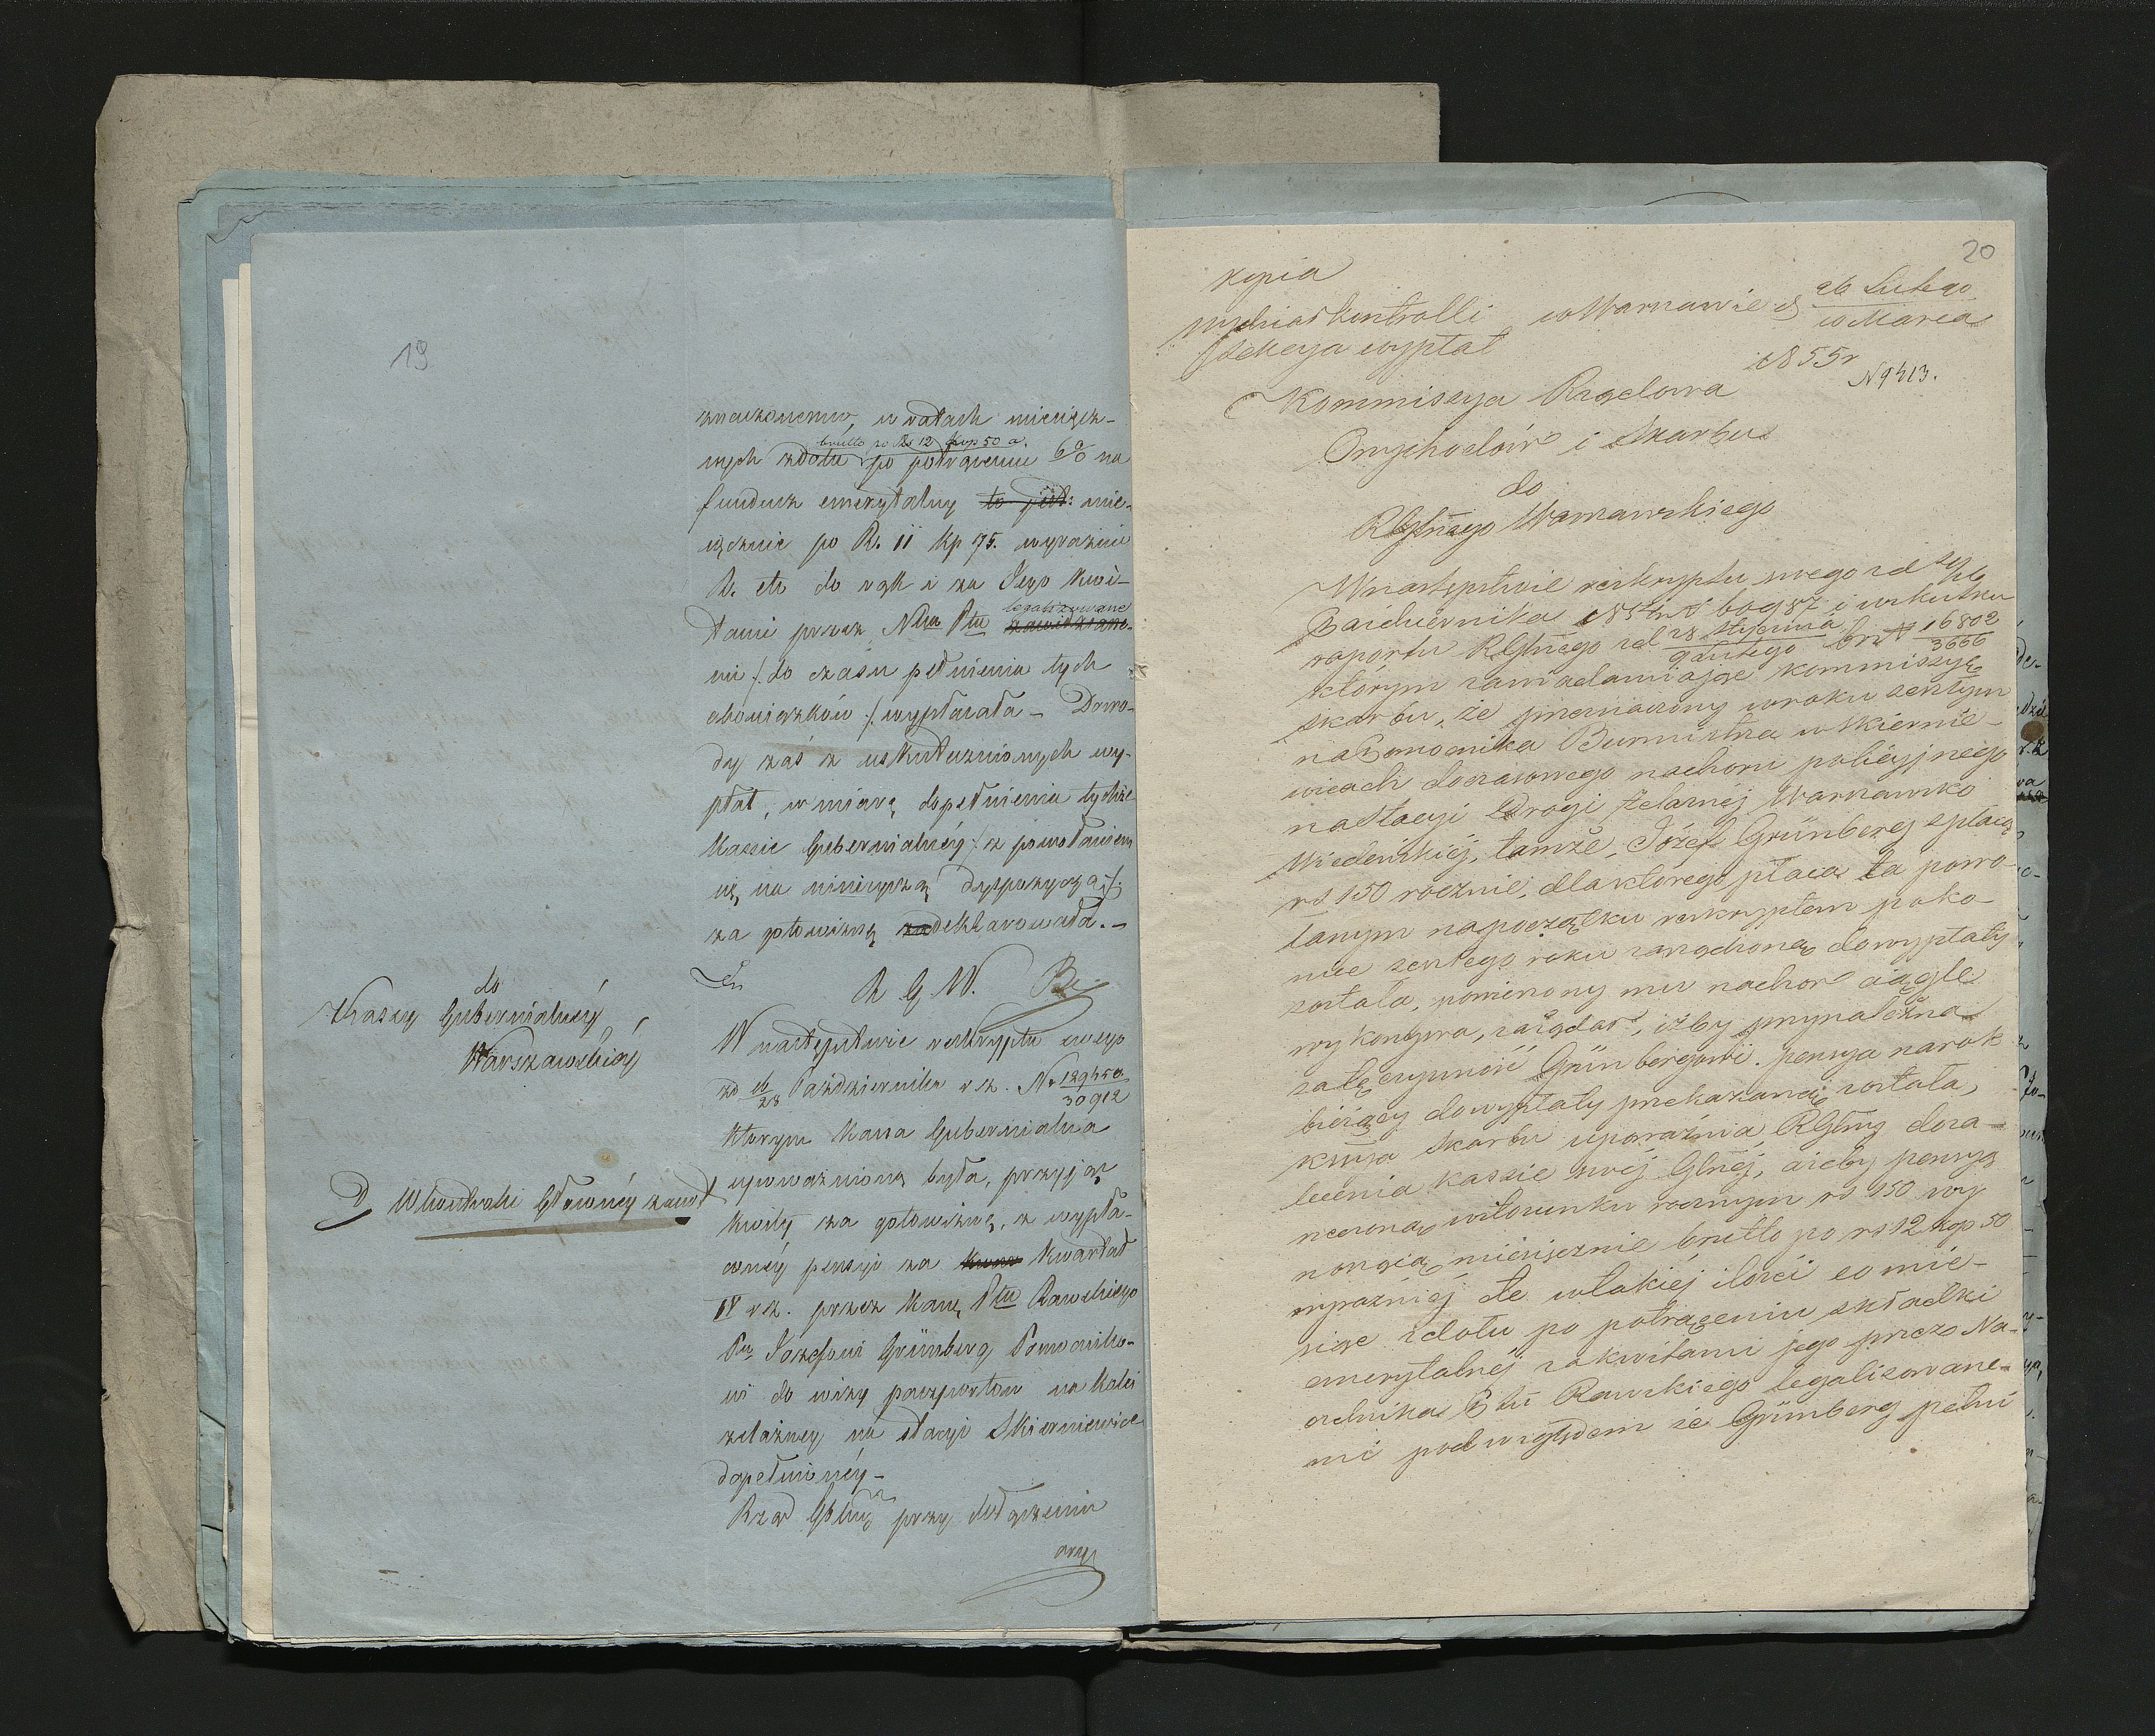 19
znaczonemu, w ratach miesięcz-
brutto po Rs 12 kop 50 a.
nych zdołu po potrąceniu 6% na
fundusz emerytalny to jest: mie-
sięcznie po R. 11 kp 75. wyraźnie
R. etc do rąk i za Jego kwi-
legalizowane
tami przez Nka Ptu zawidziane-
mi /: do czasu pełnienia tych
obowiązków :/ wypłacała – Dowo-
dy zaś z uskutecznionych wy-
płat, w miarę dopełnienia tychże
Kassie Gubernialnéy /: z powołaniem
się na niniejszą dyspozycyą :/
za gotowiznę zadeklarowała. –
do
Kassy Gubernialnéy
Warszawskiéy
R G W.
W następstwie reskryptu swego
zd 16/28 Października r z. No 129450/30912
którym Kassa Gubernialna
D Kontroli Głównéy
upoważnioną była, przyjąć
kwity za gotowiznę, z wypła-
conéy pensyi za kwartał
IV r z. przez Kassę Ptu Rawskiego
Pu Józefowi Grünberg Pomocniko-
wi do wizy paszportów na Kolei
żelazney na stacyi Skierniewice
dopełnionéy –
Rząd Gblny przy dołączeniu
20
kopia
Wydział Kontrolli w Warszawie d 26 Lutego/10 Marca
Sekcya wypłat
1855 r
N 9413.
Kommissya Rządowa
Przychodów i Skarbu
do
RGłnego Warszawskiego
W następstwie reskryptu swego zd 4/16
Października 1854 r N 60987 i w skutku
raportu RGłnego zd 28 Stycznia/9 Lutego br N 16802/3666
którym zawiadamiając kommissyę
skarbu, że przeznaczony w roku zeszłym
na Pomocnika Burmistrza w Skiernie-
wicach do czasowego nadzoru policyjnego
na Stacyi Drogi Żelaznéj Warszawsko
Wiedeńskiéj, tamże, Józef Grünberg z płacą
rs 150 rocznie, dla którego płaca ta powo-
łanym na początku reskryptem po ko-
niec zeszłego roku zarządzoną do wypłaty
została, pomieniony mu nadzór ciągle
wykonywa, zażądał, iżby przynależna
za tę czynność Grünbergowi pensya na rok
bieżący do wypłaty przekazaną została,
kmsya skarbu upoważnia RGłny do za-
lecenia kassie swéj Głnéj, ażeby pensyą
rzeczoną w stosunku rocznym rs 150 wy
noszącą miesięcznie brutto po rs 12 kop 50
wyraźniéj etc w takiéj ilości co mie-
siąc z dołu po potrąceniu składki
emerytalnéj za kwitami jego przez Na-
czelnika Ptu Rawskiego legalizowane-
mi pod względem że Grünberg pełni